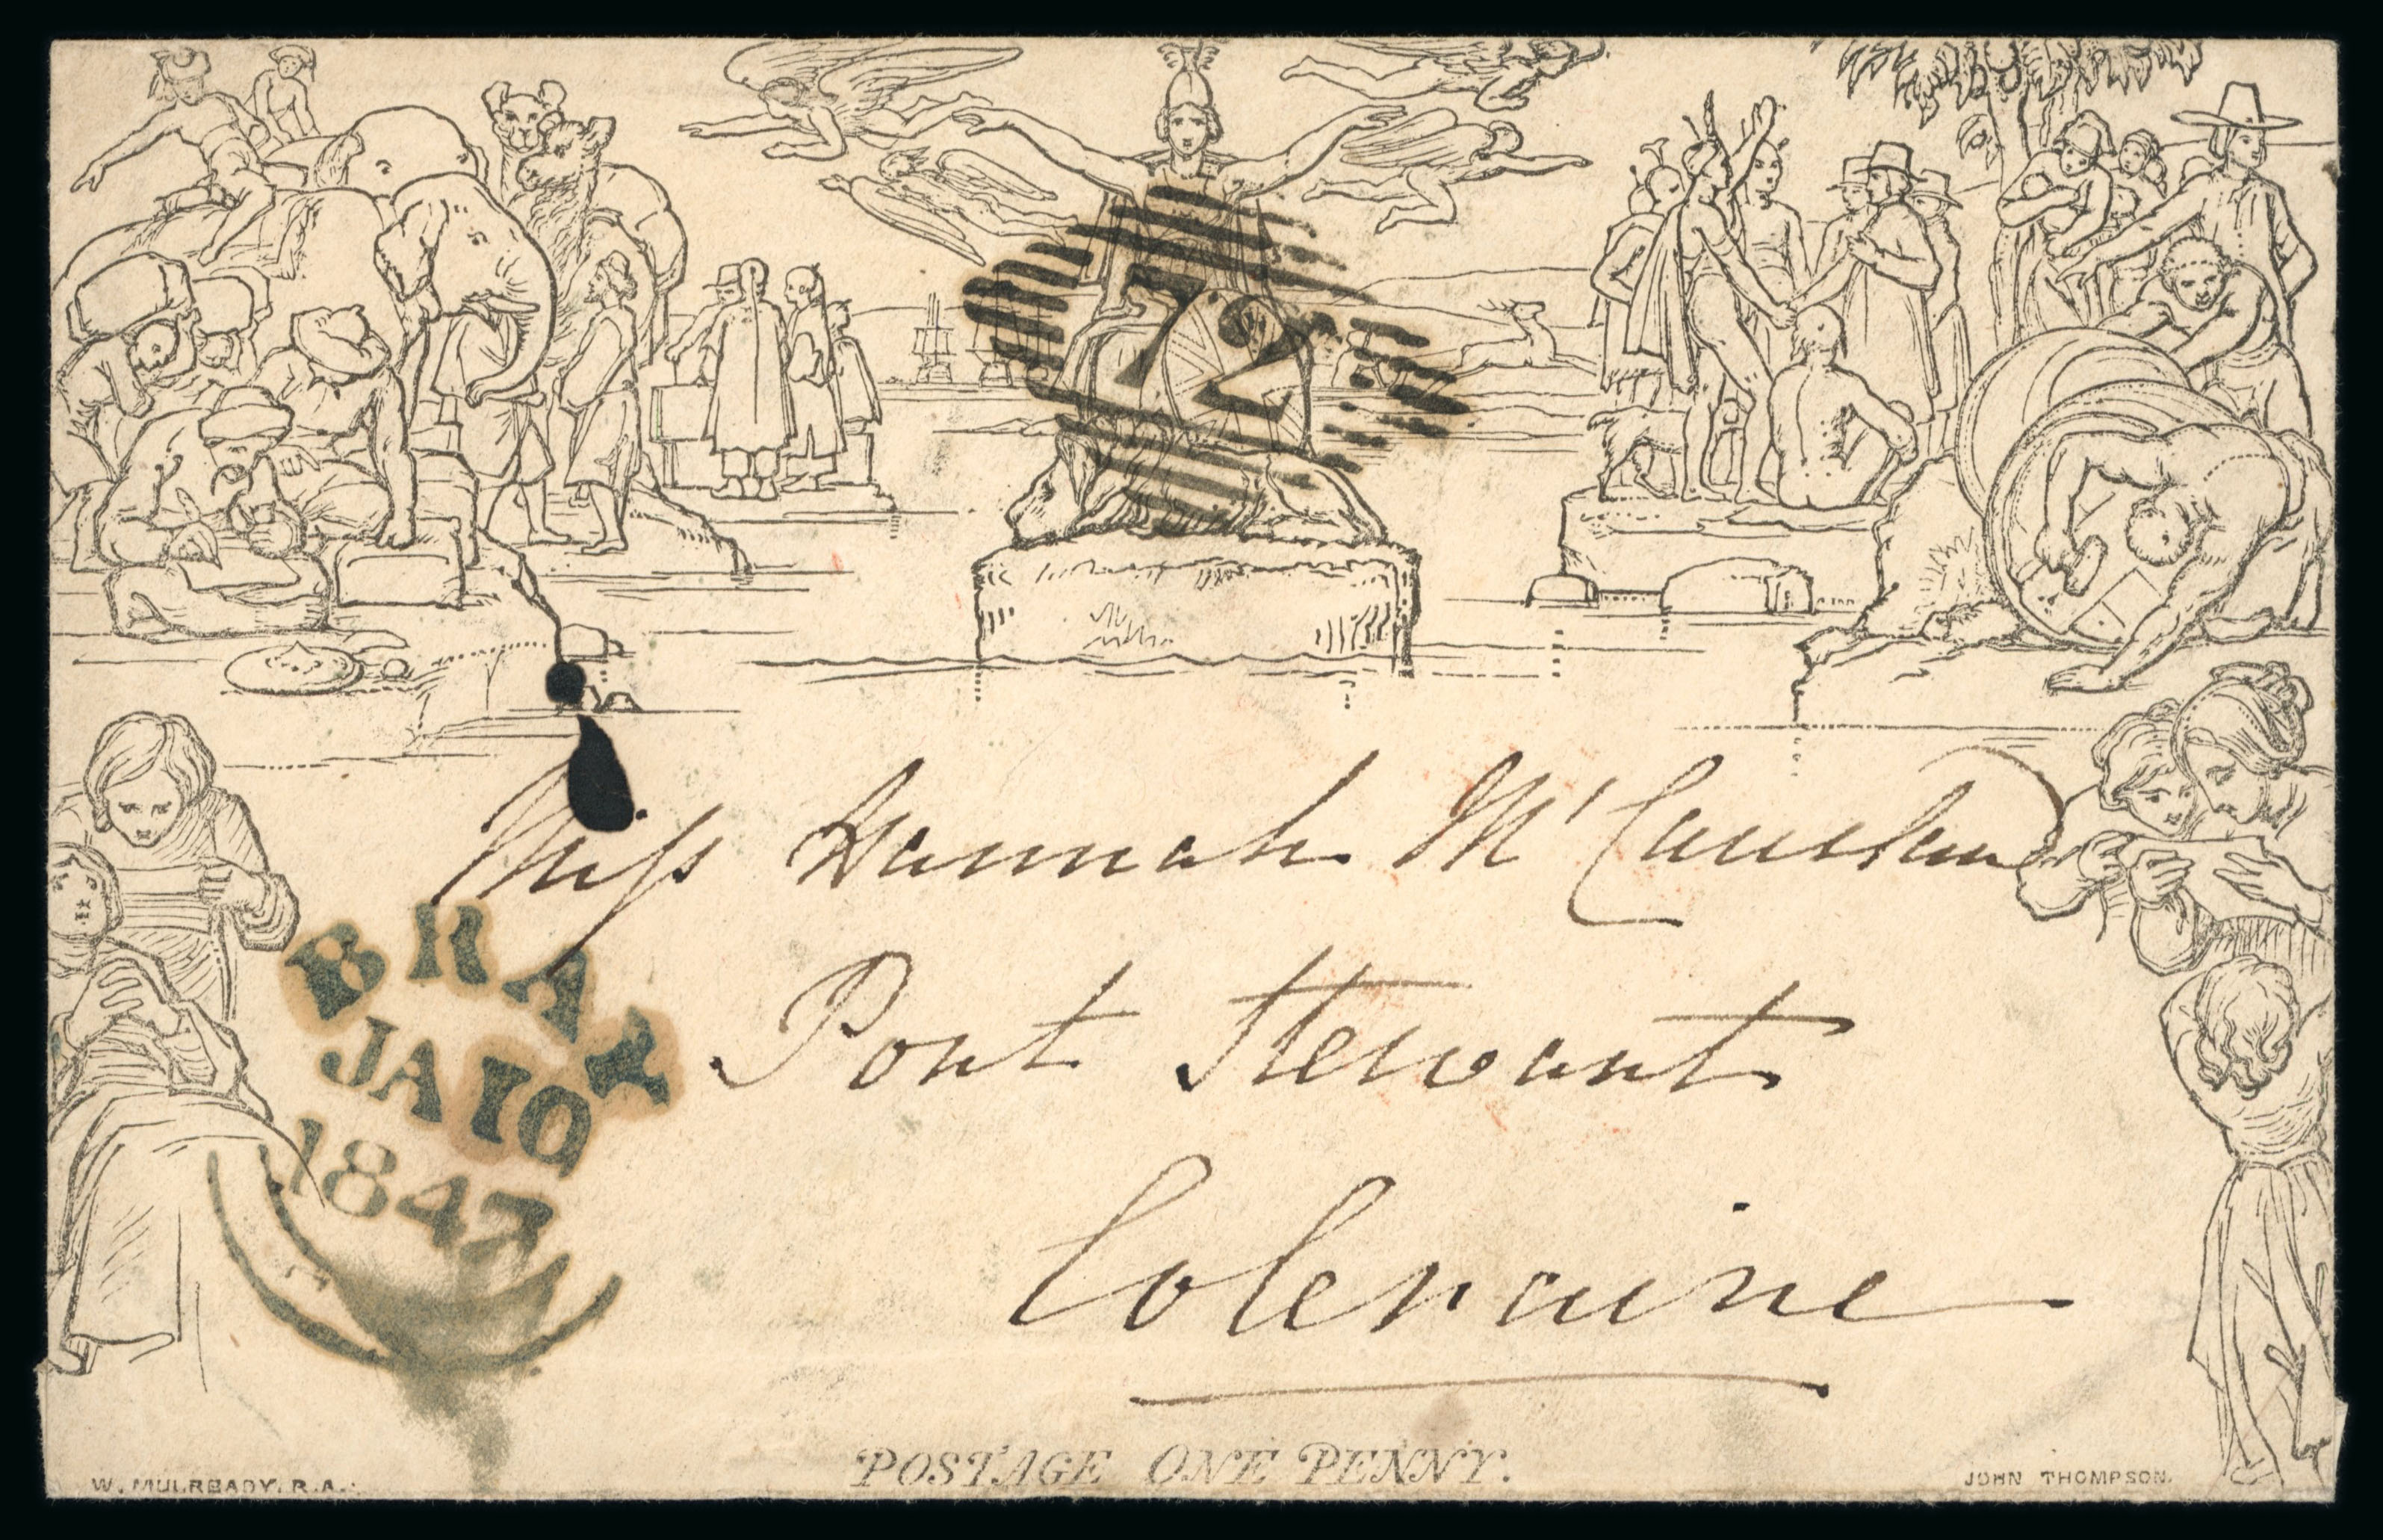 72
Miss Hannah McCausland
Port Stewart
Coleraine
BRAY
JA 10
1847
POSTAGE ONE PENNY.
W. MULREADY, R.A.
JOHN THOMPSON.